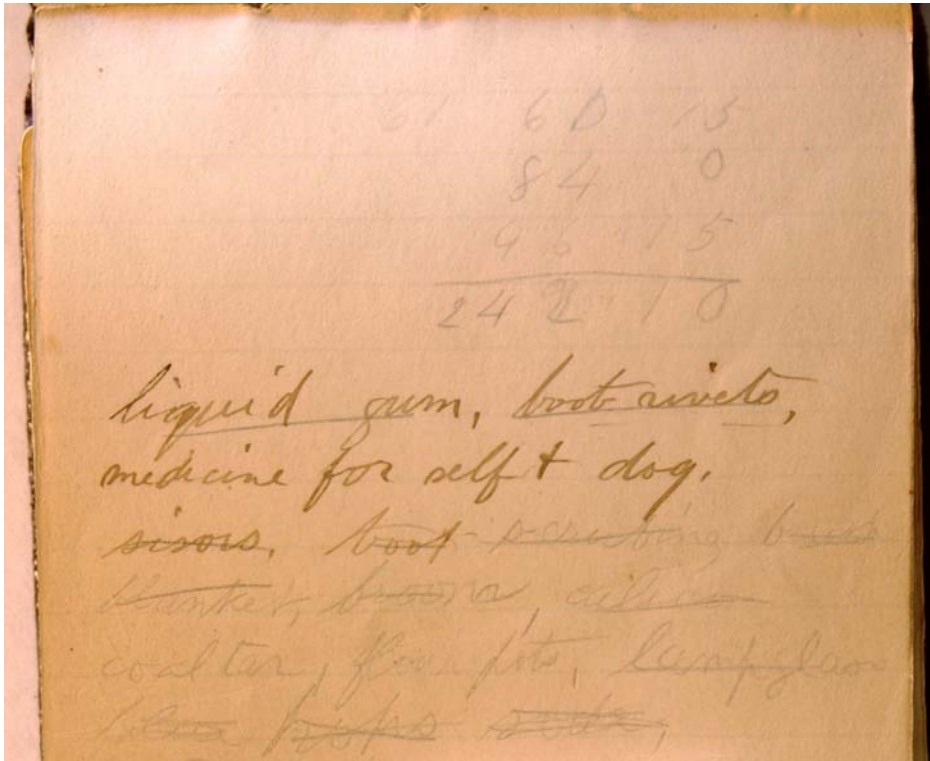 61 60 15
84 0
96 15
242 10
liquid gum, boot rivets,
medicine for self & dog.
sisors. boot scrubbing brush
blanket, broom,
coal tar, flower pots, lampglass
soda,